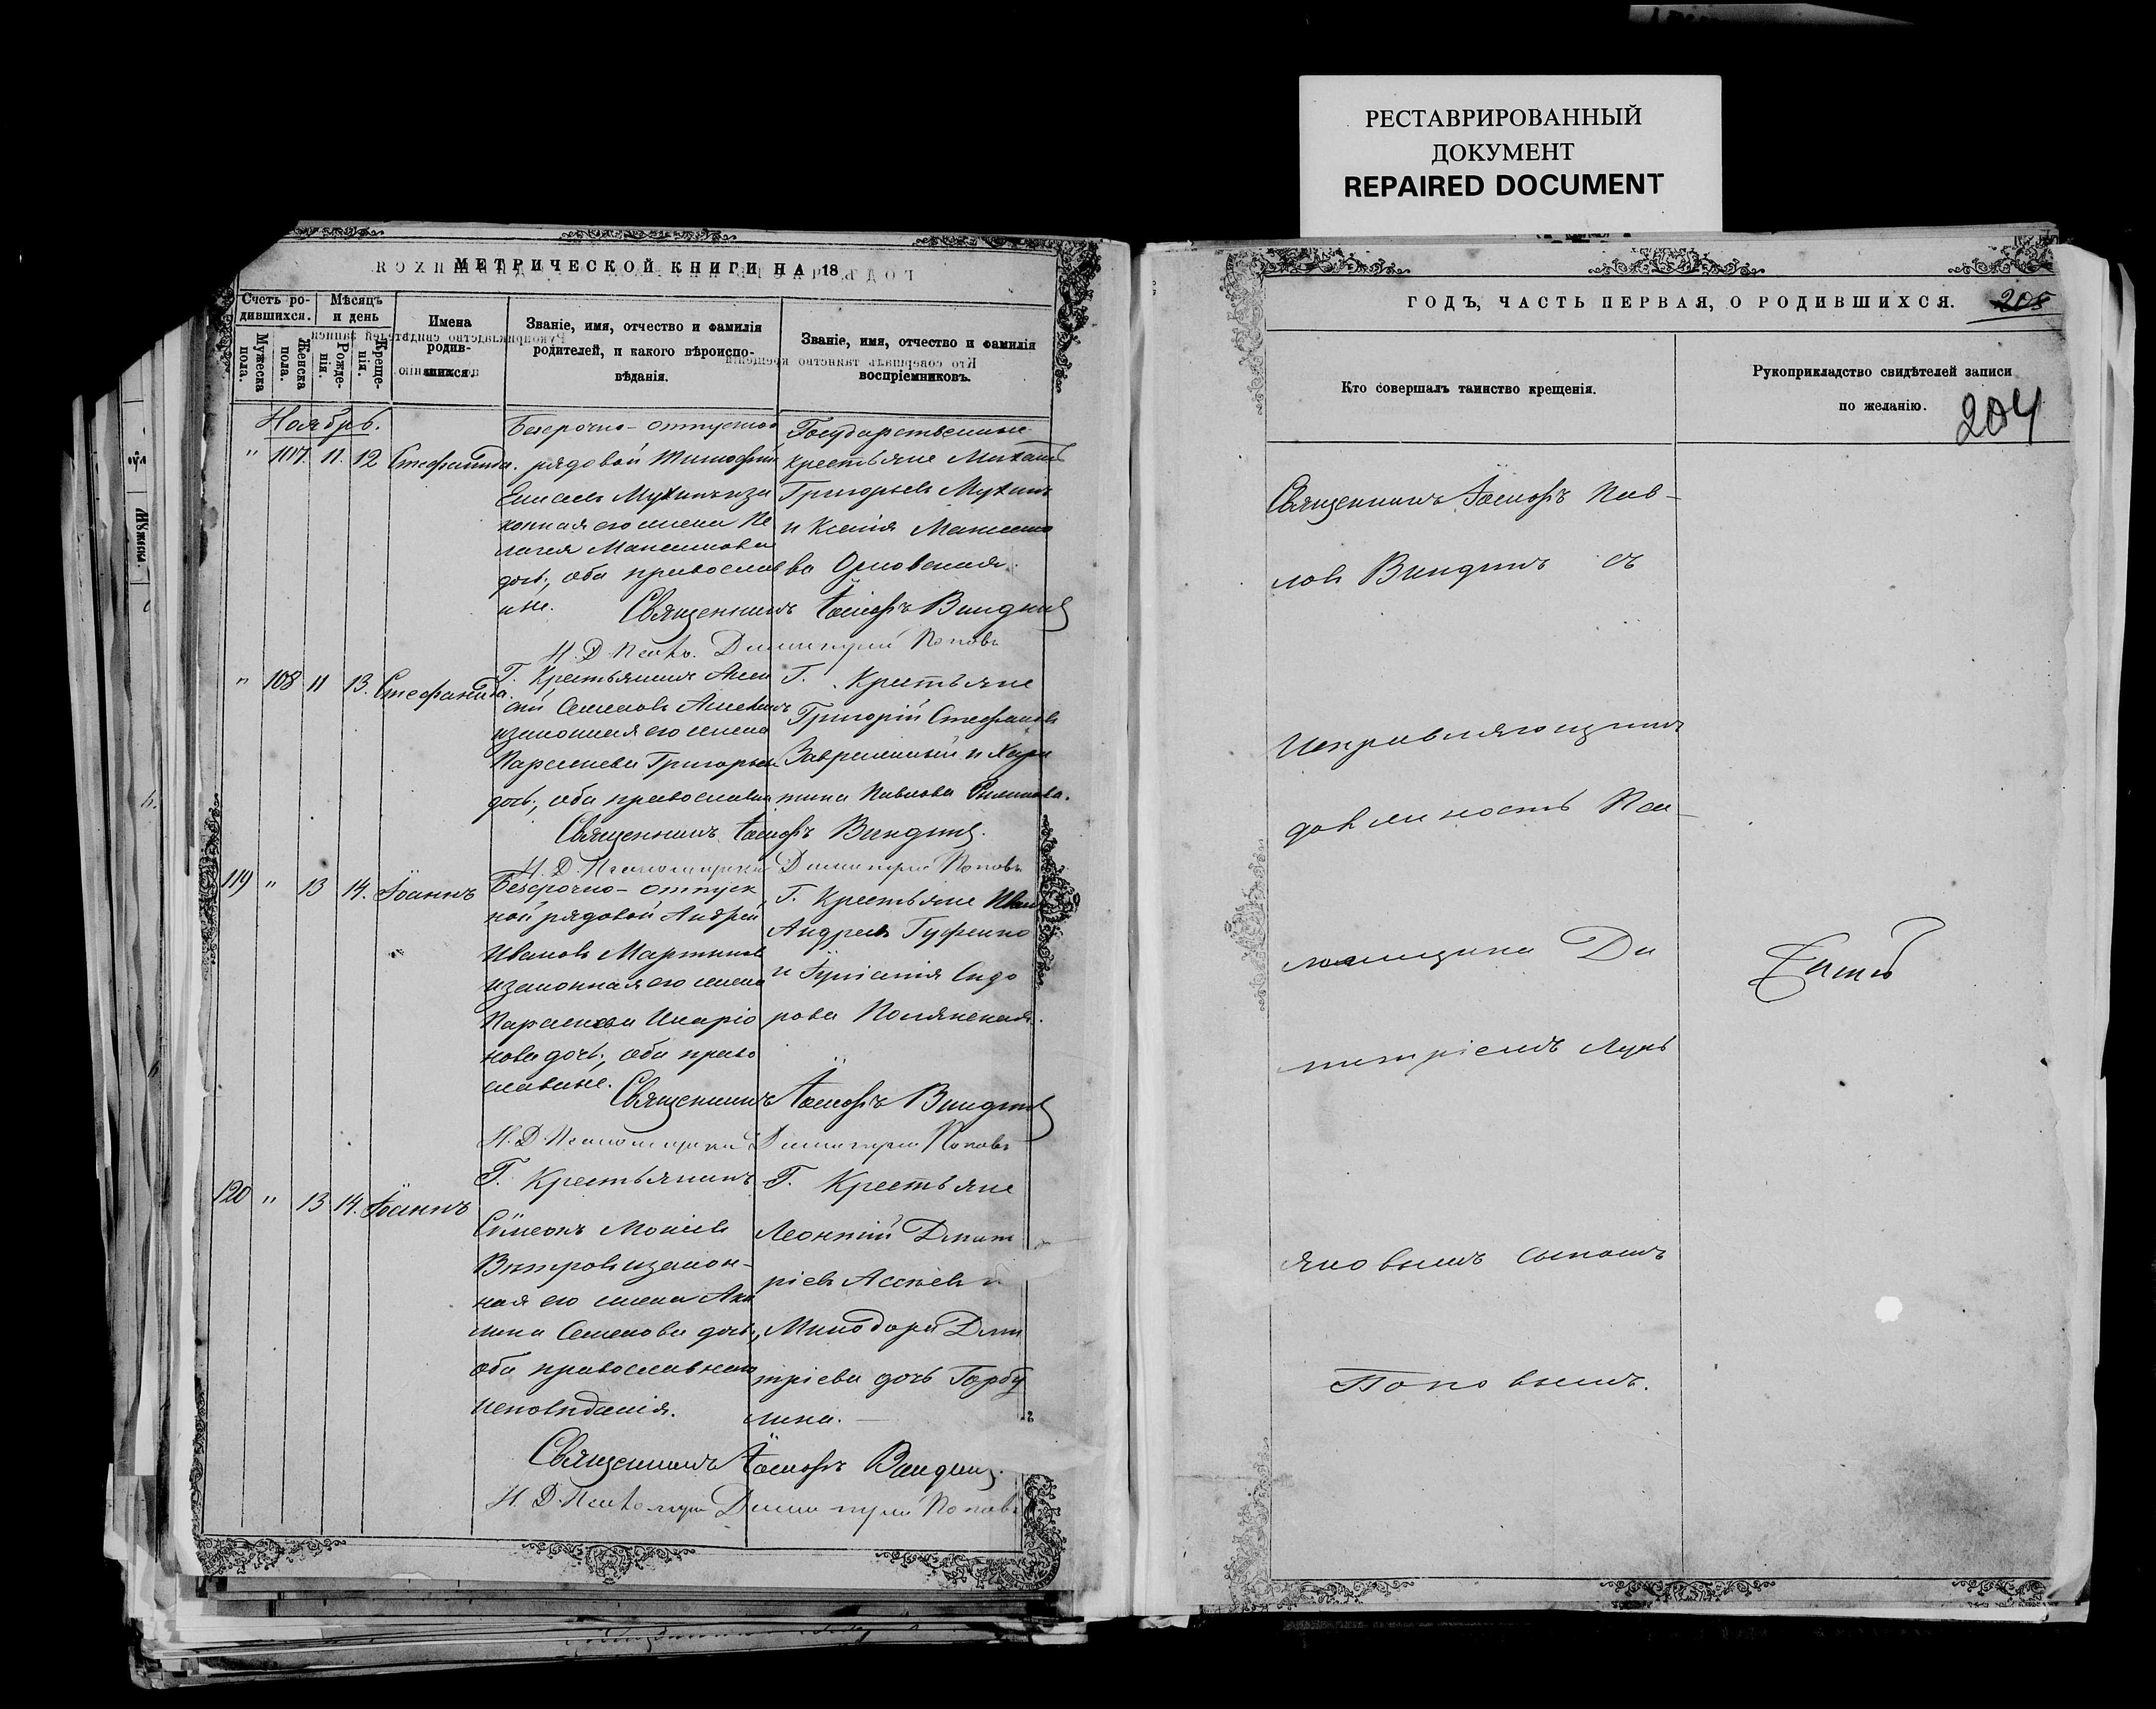 РЕСТАВРИРОВАННЫЙ
ДОКУМЕНТ
REPAIRED DOCUMENT
МЕТРИЧЕСКОЙ КНИГИ НА 18
Счетъ ро-
дившихся.
Мужеска пола.
Женска пола.
Мѣсяцъ
и день
Рожде-
нія.
Креще-
нія.
Имена
родив-
шихся.
Званіе, имя, отчество и фамилія
родителей, и какого вѣроиспо-
вѣданія.
Званіе, имя, отчество и фамилія
воспріемниковъ.
Ноябрь.
" 107. 11. 12 Стефанида.
Безсрочно-отпускной
рядовой Тимофей
Мухинъ и за
конная его жена Пе
лагея Максимова
дочь, оба православ
ные.
Государственные
крестьяне Михаилъ
Григорьевъ Мухинъ
и Ксенія Максимо
ва Орловская.
Священникъ Іосифъ Виндинъ
И. Д. Димитрий Поповъ
" 108 11 13. Стефанида.
Г. Крестьянинъ Алек
сѣй Семеновъ
и законная его жена
Параскева Григорьева
дочь, оба православн
Г. Крестьяне
Григорій Стефановъ
и Хари
тина Павлова
Священникъ Іосифъ Виндинъ.
И. Д. Псаломщика Димитрий Поповъ
119 " 13 14. Іоаннъ
Безсрочно-отпуск
ной рядовой Андрей
Ивановъ Мартыновъ
и законная его жена
Параскева Иларіо
нова дочь, оба право
славные.
Г. Крестьяне Иванъ
Андреевъ
и Сидо
рова Полянская.
Священникъ Іосифъ Виндинъ
И. Д. Псаломщика Димитрий Поповъ
120 " 13 14. Іоаннъ
Г. Крестьянинъ
Сѵмеонъ
Вѣтровъ и закон-
ная его жена Аки
лина Семенова дочь,
оба православнаго
исповѣданія.
Г. Крестьяне
Леонтій Дмит
ріевъ и
Минодора Дми
тріева дочь Горбу
лина.
Священникъ Іосифъ Виндинъ.
И. Д. Димитрий Поповъ
ГОДЪ, ЧАСТЬ ПЕРВАЯ, О РОДИВШИХСЯ.
205
Кто совершалъ таинство крещенія.
Рукоприкладство свидѣтелей записи
по желанію.
204
Священникъ Іосифъ Пав-
ловъ Виндинъ съ
исправляющимъ
должность Пса-
ломщика Ди
митріемъ Лукь
яновымъ сыномъ
Поповымъ.